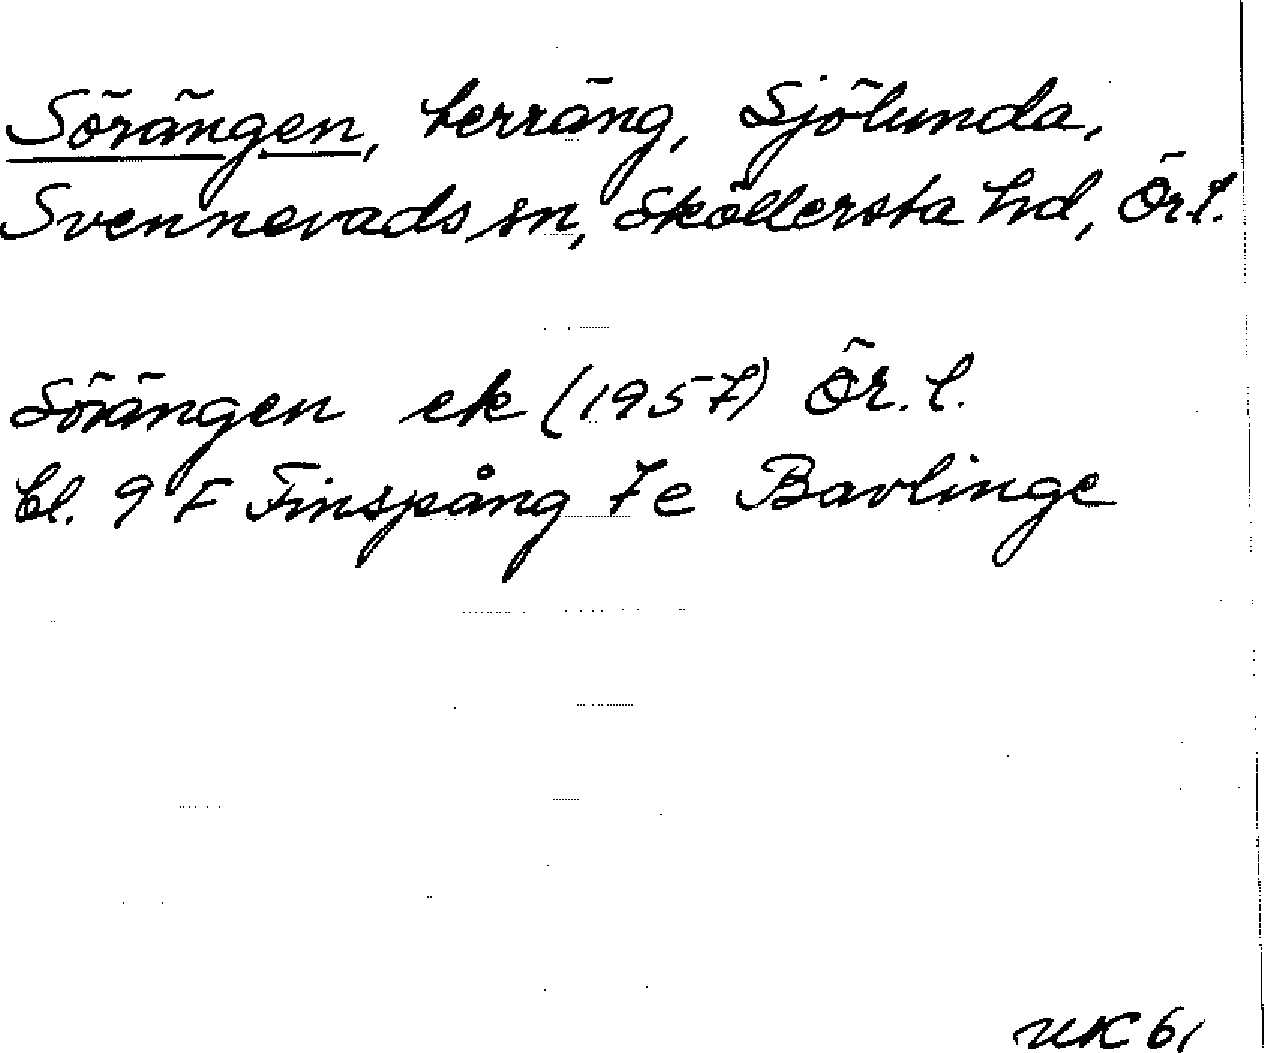 Sörängen, terräng, Sjölunda,
Svennevads sn, Sköllersta hd, Ör.l.
Sörängen ek (1957) Ör. l.
bl. 9 F Finspång 7e Bavlinge
UK 61